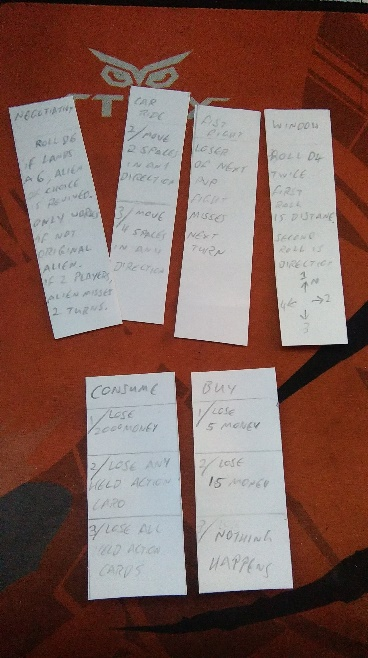 NEGOTIATION
ROLL D6
IF LANDS
A 6, ALIEN
OF CHOICE
IS REVIVED.
ONLY WORKS
IF NOT
ORIGINAL
ALIEN.
IF 2 PLAYERS,
ALIEN MISSES
2 TURNS.
CAR
RIDE
2/ MOVE
2 SPACES
IN ANY
DIRECTION
3/ MOVE
4 SPACES
IN ANY
DIRECTION
FIST
FIGHT
LOSER
OF NEXT
PVP
FIGHT
MISSES
NEXT
TURN
WINDOW
ROLL D4
TWICE
FIRST
ROLL
IS DISTANCE
SECOND
ROLL IS
DIRECTION
1
4 2
3
CONSUME
1/ LOSE
MONEY
2/ LOSE ANY
HELD ACTION
CARD
3/ LOSE ALL
HELD ACTION
CARDS
BUY
1/ LOSE
5 MONEY
2/ LOSE
15 MONEY
3/ NOTHING
HAPPENS